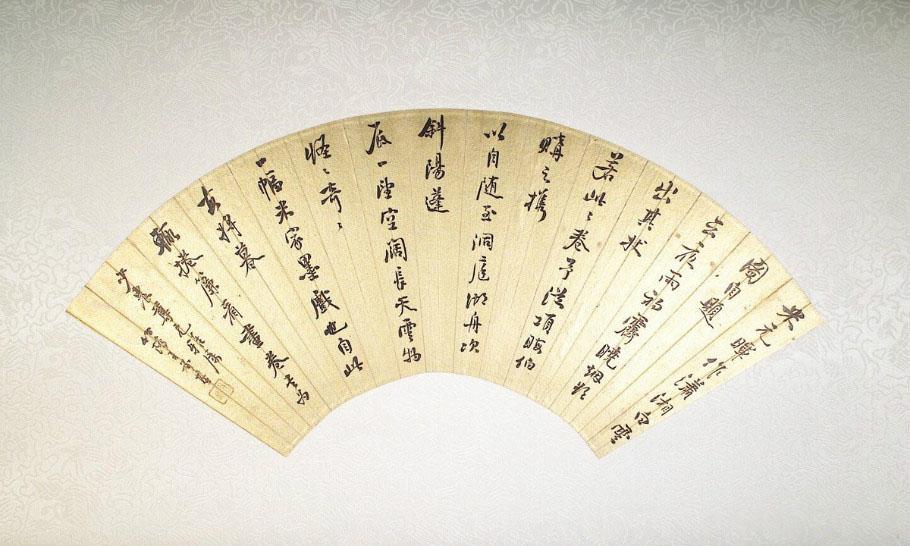 米元暉作瀟湘白雲
圖自題
云夜雨初霽曉烟欲
出其狀
若此〻卷予從項晦伯
購之攜
以自隨至洞庭湖舟次
斜陽蓬
底一望空闊長天雲物
怪〻奇〻
一幅米家墨戲也自此
將暮
輒捲簾看畫卷
尊兄雅屬